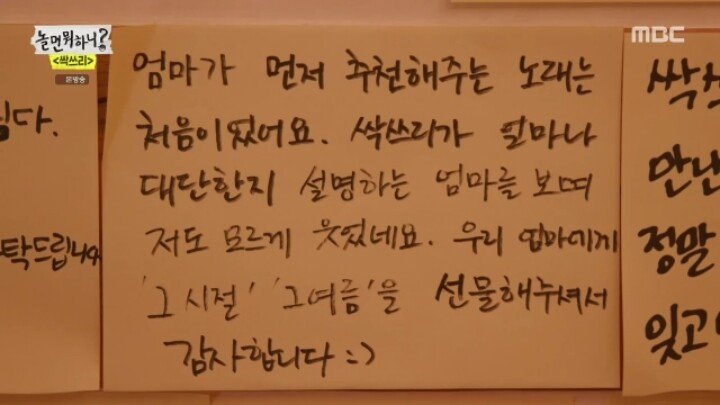 놀면 뭐하니?
<싹쓰리>
본방송
MBC
엄마가 먼저 추천해주는 노래는
처음이었어요. 싹쓰리가 얼마나
대단한지 설명하는 엄마를 보며
저도 모르게 웃었네요. 우리 엄마에게
'그 시절' '그여름'을 선물해주셔서
감사합니다 :)
탁드립니다
싹
만난
정말
잊고